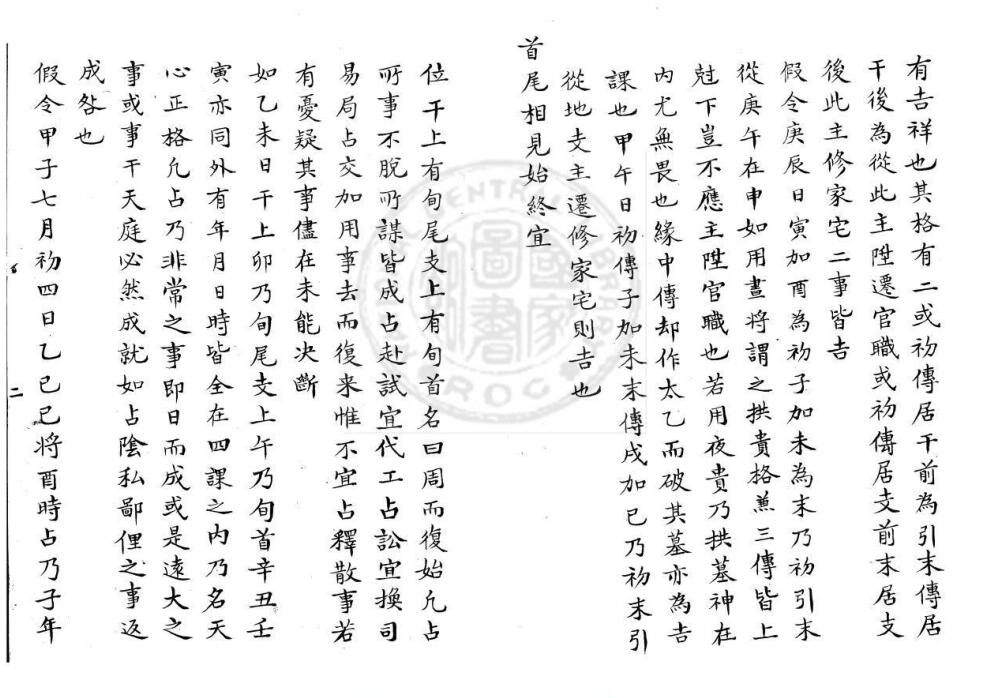 有吉祥也其格有二或初傳居干前為引末傳居
干後為從此主陞遷官職或初傳居支前末居支
後此主修家宅二事皆吉
假令庚辰日寅加酉為初子加未為末乃初引末
從庚午在申如用晝將謂之拱貴格蒸三傳皆上
尅下豈不應主陞官職也若用夜貴乃拱墓神在
內尤無畏也緣中傳却作太乙而破其墓亦為吉
課也甲午日初傳子加未末傳戌加巳乃初末引
從地支主遷修家宅則吉也
首尾相見始終宜
位干上有旬尾支上有旬首名曰周而復始凡占
所事不脫所謀皆成占赴試宜代工占訟宜換司
易局占交加用事去而復来惟不宜占釋散事若
有憂疑其事儘在未能决斷
如乙未日干上卯乃旬尾支上午乃旬首辛丑壬
寅亦同外有年月日時皆全在四課之內乃名天
心正格凡占乃非常之事即日而成或是遠大之
事或事干天庭必然成就如占陰私鄙俚之事返
成咎也
假令甲子七月初四日乙巳巳將酉時占乃子年
二